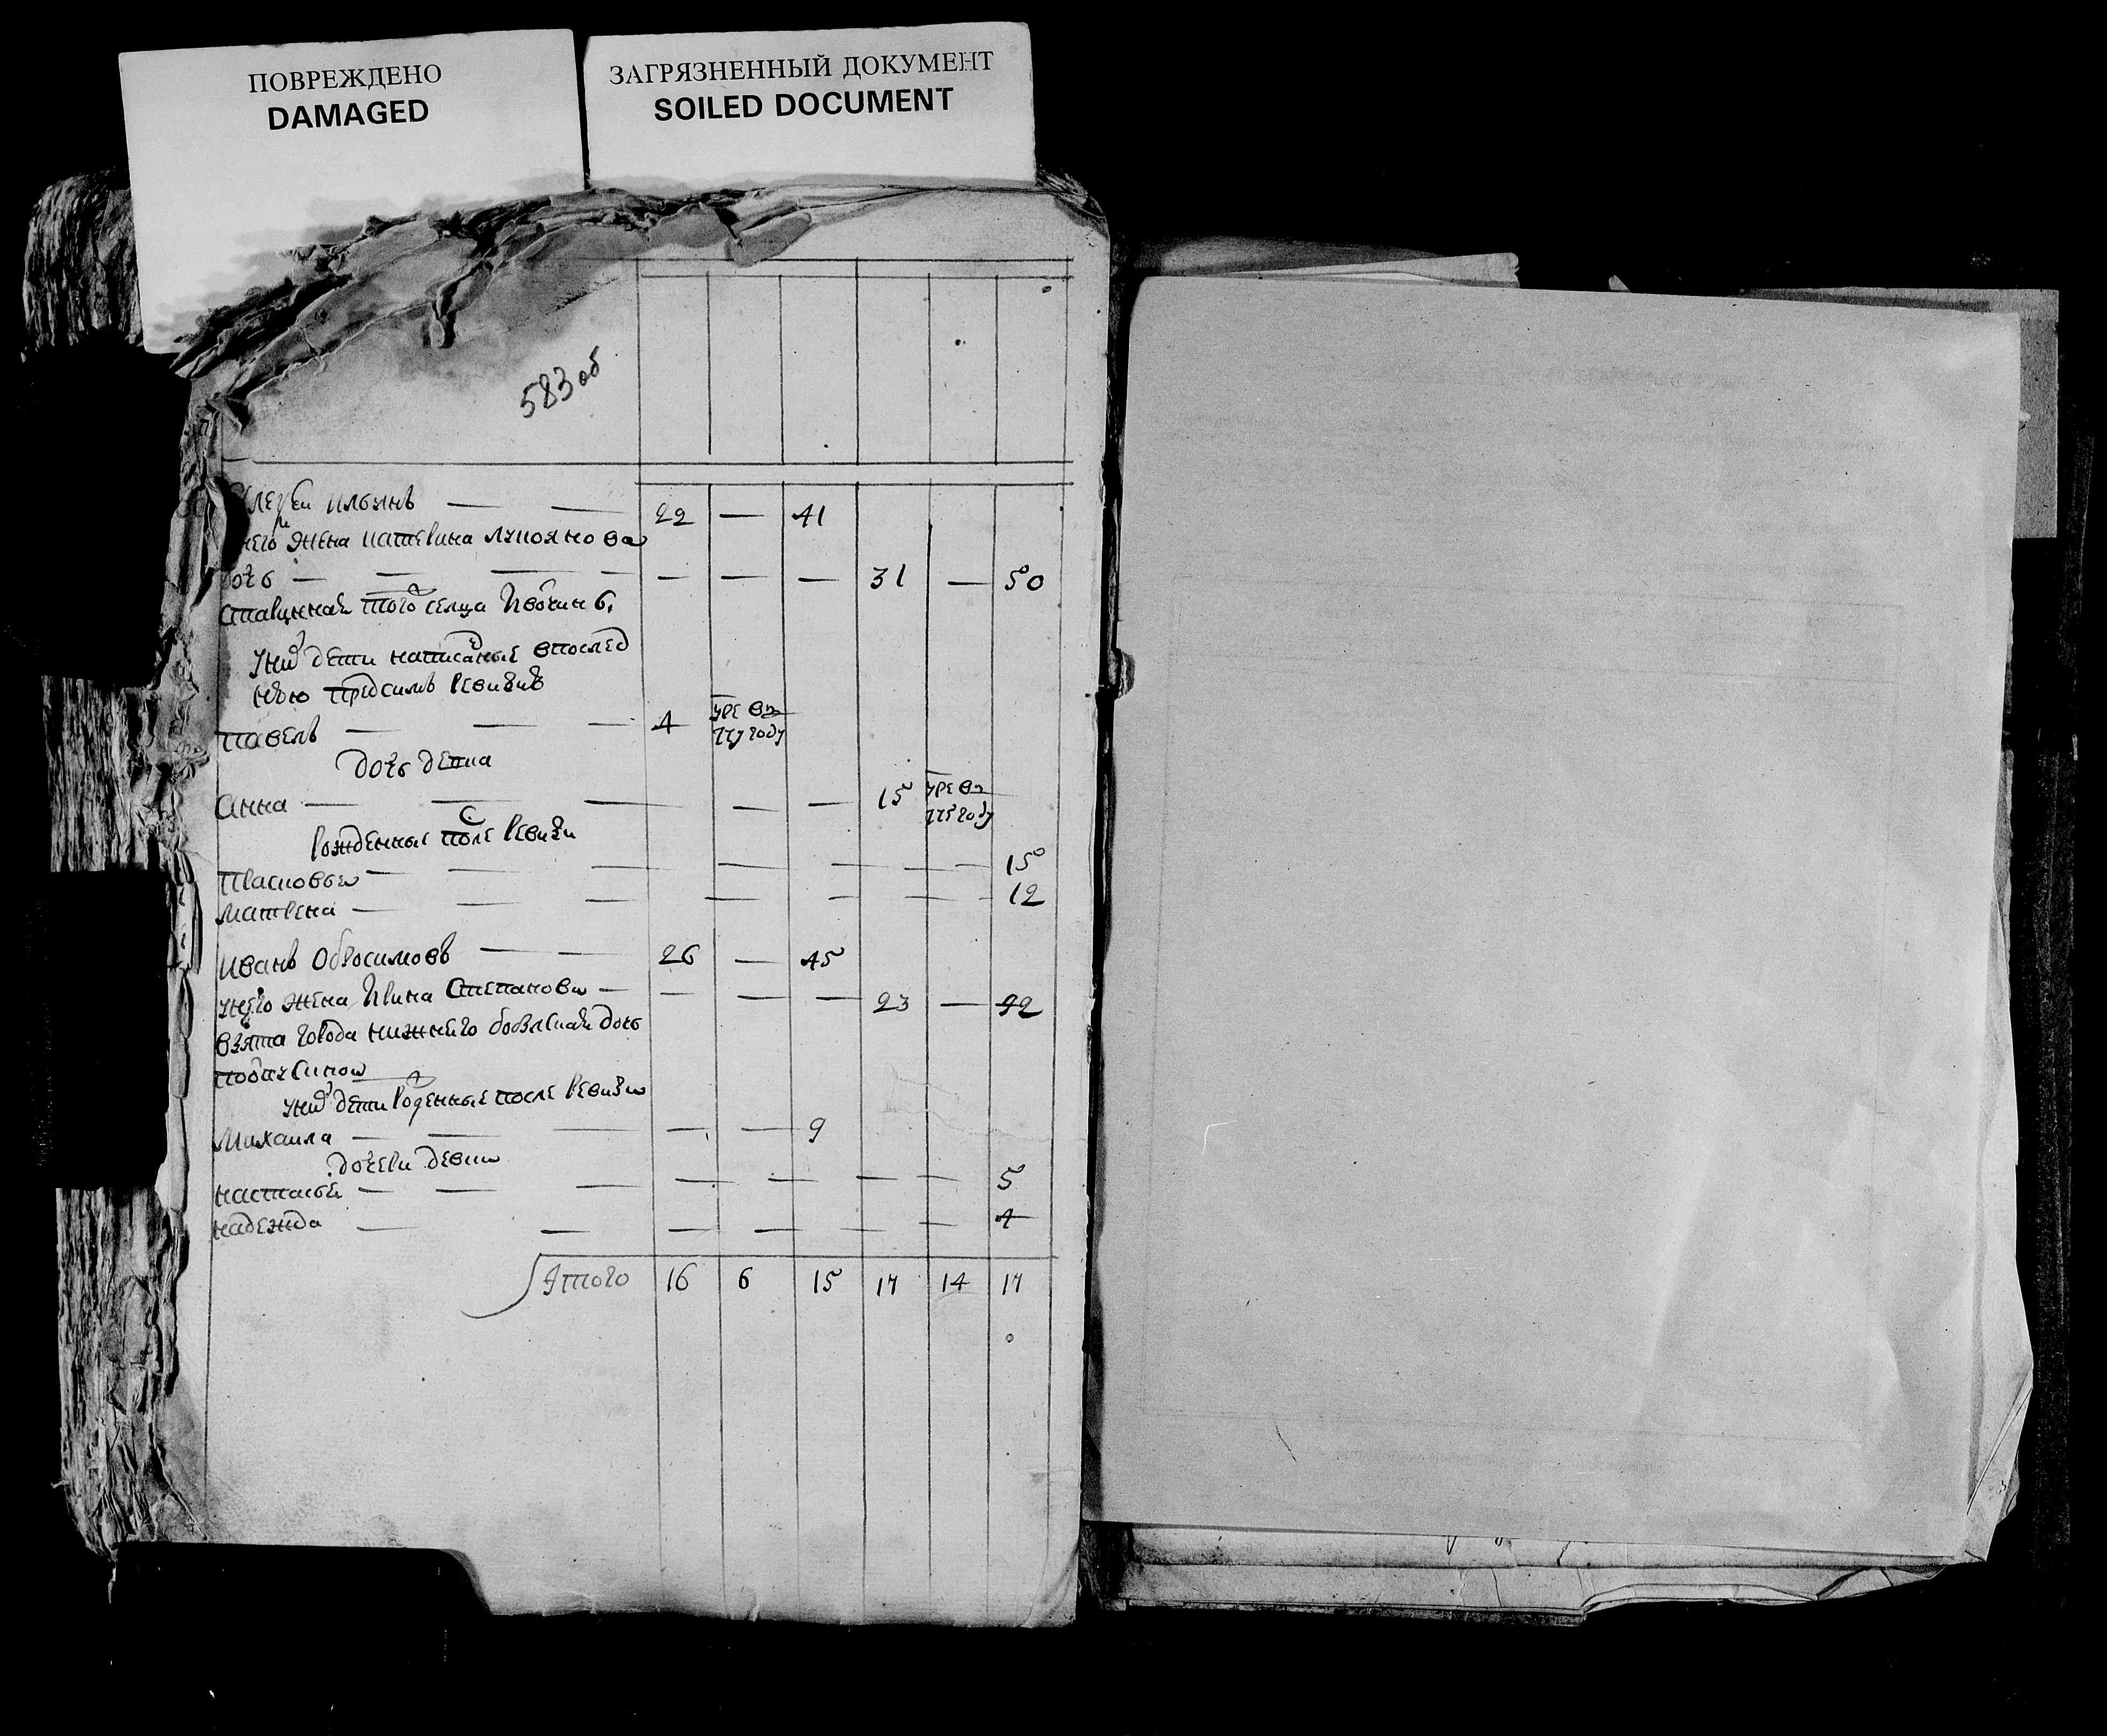 ПОВРЕЖДЕНО
DAMAGED
ЗАГРЯЗНЕННЫЙ ДОКУМЕНТ
SOILED DOCUMENT
583 об
Ильинъ — — 22 — 41
него жена катерина лукоянова
дочь — — — — — — — 31 — 50
того селца
у них дети написанные в послед
нюю пред симъ ревизию
павелъ — — — 4
дочь девка
Анна — — — — — 15
рожденные после ревизи
Прасковья — — — — — — — 15
Матрена — — — — — — — 12
иванъ Обросимовъ — — 26 — 45
у него жена Ирина Степанова — — — — 23 — 42
взята города нижнего дочь
у них дети рожденные после ревизи
Михаила — — — — — 9
дочери девки
настасья — — — — — — — 5
надежда — — — — — — — 4
Итого 16 6 15 17 14 17